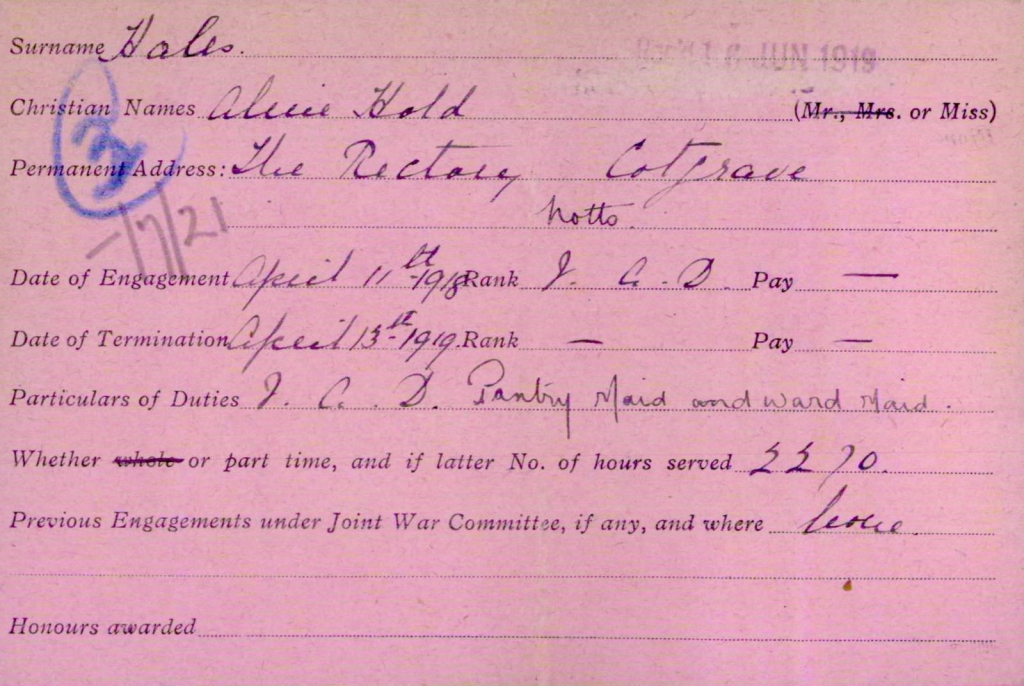 Surname Hales.
16 JUN 1919
Christian Names Alice Hold (Mr., Mrs. or Miss)
Permanent Address: The Rectory Cotgrave
Notts.
-/7/21
Date of Engagement April 11th 1918 Rank V. A. D. Pay —
Date of Termination April 13th 1919. Rank — Pay —
Particulars of Duties V. A. D. Pantry Maid and Ward Maid.
Whether whole or part time, and if latter No. of hours served 2270.
Previous Engagements under Joint War Committee, if any, and where None.
Honours awarded